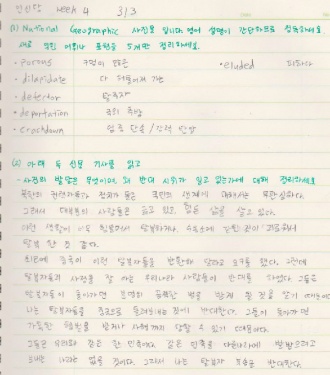 week 4 3/3
(1) National Geographic 사진을 봅니다. 영어 설명이 간단하므로 정독하세요.
새로 나온 어휘나 표현을 5개만 정리하세요.
• porous 구멍이 많은 • eluded 피하다
• dilapidate 다 허물어져 가는
• defector 탈북자
• deportation 국외 추방
• Crackdown 엄중 단속 / 강력 탄압
(2) 아래 두 신문 기사를 읽고
- 사건의 발단은 무엇이며, 왜 반대 시위가 일고 있는가에 대해 정리하세요
북한의 권력자들과 정치가들은 국민의 생계에 대해서는
그래서 대부분의 사람들은 굶고 있고 힘든 삶을 살고 있다.
이런 생활이 너무 힘들어서 탈북하거나, 수용소에 갇힌 것이
탈북한 것 같다.
최근에 중국이 이런 탈북자들을 반환해 달라고 요구를 했다. 그런데
탈북자들의 사정을 잘 아는 우리나라 사람들이 반대를 하였다. 그들은
탈북자들이 돌아가면 분명히 끔찍한 벌을 받게 될 것을 알기 때문이다.
나는 탈북자들을 중국으로 돌려보내는 것이 반대한다. 그들이 돌아가면
가혹한 형벌을 받거나 사형까지 당할 수 있기 때문이다.
그들은 우리와 같은 한 민족이다. 같은 민족을 다른나라에
나라는 없을 것이다. 그래서 나는 탈북자 반대한다.